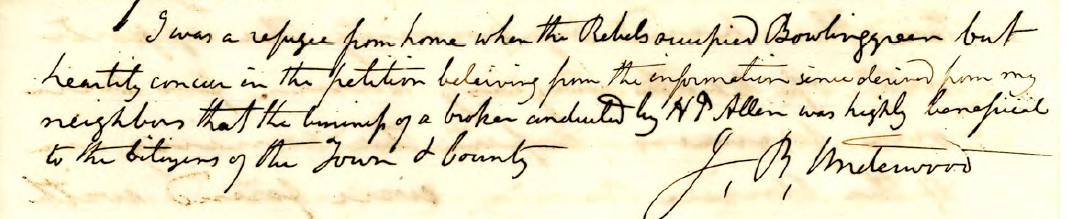 I was a refugee from home when the Rebels occupied Bowlinggreen but
heartily concur in the petition beleiving from the information since derived from my
neighbors that the business of a broker conducted by H D Allen was highly beneficial
to the Citizens of the Town & County
J, R, Underwood